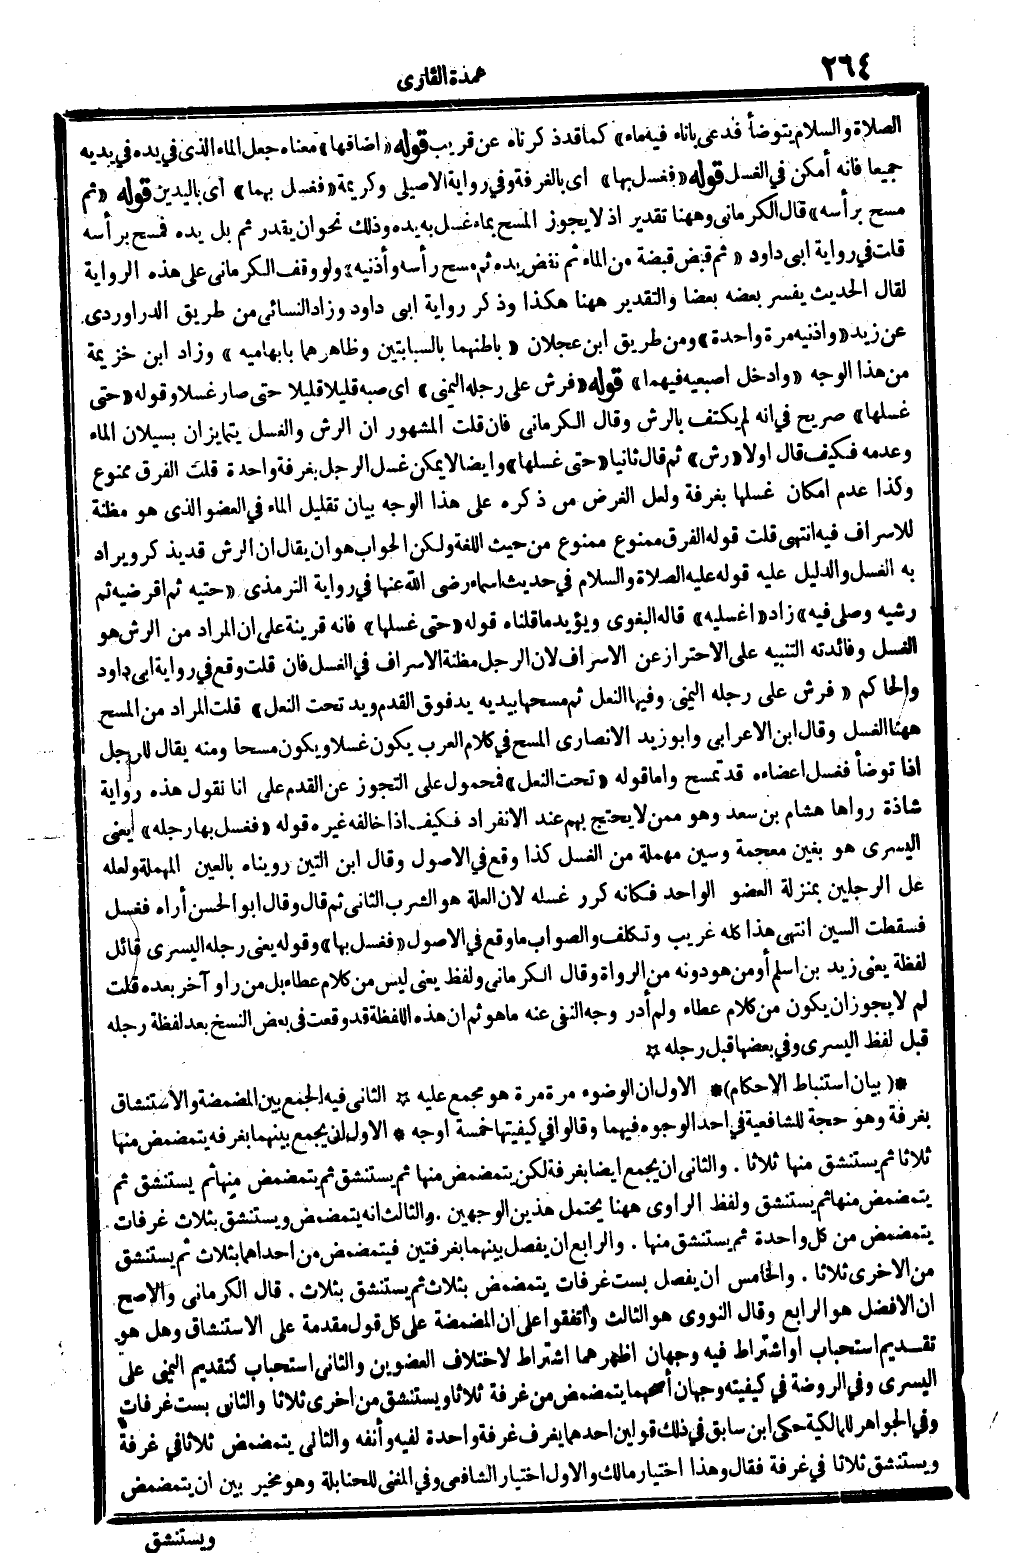 ٢٦٤
عمدة القارى
الصلاة والسلام يتوضأ فدعى باناء فيه ماء» كما قد ذكرناه عن قريب قوله «اضافها» معناه جعل الماء الذى فى يده فى يديه
جميعا فانه أمكن فى الغسل قوله «فغسل بها» اى بالغرفة وفى رواية الاصيلى وكريمة «فغسل بهما» اى باليدين قوله «ثم
مسح برأسه» قال الكرمانى وههنا تقدير اذ لا يجوز المسح بماء غسل به يده وذلك نحو ان يقدر ثم بل يده فمسح برأسه
قلت فى رواية ابى داود «ثم قبض قبضة من الماء ثم نفض يده ثم مسح رأسه وأذنيه» ولو وقف الكرمانى على هذه الرواية
لقال الحديث يفسر بعضه بعضا والتقدير ههنا هكذا وذكر رواية ابى داود وزاد النسائى من طريق الدراوردى
عن زيد «واذنيه مرة واحدة» ومن طريق ابن عجلان «باطنهما بالسبابتين وظاهرهما بابهاميه» وزاد ابن خزيمة
من هذا الوجه «وادخل اصبعيه فيهما» قوله «فرش على رجله اليمنى» اى صبه قليلا قليلا حتى صار غسلا وقوله «حتى
غسلها» صريح فى انه لم يكتف بالرش وقال الكرمانى فان قلت المشهور ان الرش والغسل يتمايزان بسيلان الماء
وعدمه فكيف قال اولا «رش» ثم قال ثانيا «حتى غسلها» وايضا لا يمكن غسل الرجل بغرفة واحدة قلت الفرق ممنوع
وكذا عدم امكان غسلها بغرفة ولعل الغرض من ذكره على هذا الوجه بيان تقليل الماء فى العضو الذى هو مظنة
للاسراف فيه انتهى قلت قوله الفرق ممنوع ممنوع من حيث اللغة ولكن الجواب هو ان يقال ان الرش قد يذكر ويراد
به الغسل والدليل عليه قوله عليه الصلاة والسلام فى حديث اسماء رضى الله عنها فى رواية الترمذى «حتيه ثم اقرضيه ثم
رشيه وصلى فيه» زاد «اغسليه» قاله البغوى ويؤيد ما قلناه قوله «حتى غسلها» فانه قرينة على ان المراد من الرش هو
الغسل وفائدته التنبيه على الاحتراز عن الاسراف لان الرجل مظنة الاسراف فى الغسل فان قلت وقع فى رواية ابى داود
والحاكم «فرش على رجله اليمنى وفيها النعل ثم مسحها بيديه يد فوق القدم ويد تحت النعل» قلت المراد من المسح
ههنا الغسل وقال ابن الاعرابى وابو زيد الانصارى المسح فى كلام العرب يكون غسلا ويكون مسحا ومنه يقال للرجل
اذا توضأ فغسل اعضاءه قد تمسح واما قوله «تحت النعل» فمحمول على التجوز عن القدم على انا نقول هذه رواية
شاذة رواها هشام بن سعد وهو ممن لا يحتج بهم عند الانفراد فكيف اذا خالفه غيره قوله «فغسل بها رجله» يعنى
اليسرى هو بغين معجمة وسين مهملة من الغسل كذا وقع فى الاصول وقال ابن التين رويناه بالعين المهملة ولعله
عل الرجلين بمنزلة العضو الواحد فكانه كرر غسله لان العلة هو الشرب الثانى ثم قال وقال ابو الحسن أراه فغسل
فسقطت السين انتهى هذا كله غريب وتكلف والصواب ما وقع فى الاصول «فغسل بها» وقوله يعنى رجله اليسرى قائل
لفظة يعنى زيد بن اسلم أو من هو دونه من الرواة وقال الكرمانى ولفظ يعنى ليس من كلام عطاء بل من راو آخر بعده قلت
لم لا يجوز ان يكون من كلام عطاء ولم أدر وجه النفى عنه ما هو ثم ان هذه اللفظة قد وقعت فى بعض النسخ بعد لفظة رجله
قبل لفظ اليسرى وفى بعضها قبل رجله ☆
*(بيان استنباط الاحكام)* الاول ان الوضوء مرة مرة هو مجمع عليه ☆ الثانى فيه الجمع بين المضمضة والاستنشاق
بغرفة وهو حجة للشافعية فى احد الوجوه فيهما وقالوا فى كيفيتها خمسة اوجه * الاول ان يجمع بينهما بغرفة يتمضمض منها
ثلاثا ثم يستنشق منها ثلاثا . والثانى ان يجمع ايضا بغرفة لكن يتمضمض منها ثم يستنشق ثم يتمضمض منها ثم يستنشق ثم
يتمضمض منها ثم يستنشق ولفظ الراوى ههنا يحتمل هذين الوجهين . والثالث انه يتمضمض ويستنشق بثلاث غرفات
يتمضمض من كل واحدة ثم يستنشق منها . والرابع ان يفصل بينهما بغرفتين فيتمضمض من احداهما بثلاث ثم يستنشق
من الاخرى ثلاثا . والخامس ان يفصل بست غرفات يتمضمض بثلاث ثم يستنشق بثلاث . قال الكرمانى والاصح
ان الافضل هو الرابع وقال النووى هو الثالث واتفقوا على ان المضمضة على كل قول مقدمة على الاستنشاق وهل هو
تقديم استحباب او اشتراط فيه وجهان اظهرهما اشتراط لاختلاف العضوين والثانى استحباب كتقديم اليمنى على
اليسرى وفى الروضة فى كيفيته وجهان أصحهما يتمضمض من غرفة ثلاثا ويستنشق من اخرى ثلاثا والثانى بست غرفات
وفى الجواهر للمالكية حكى ابن سابق فى ذلك قولين احدهما يغرف غرفة واحدة لفيه وأنفه والثانى يتمضمض ثلاثا فى غرفة
ويستنشق ثلاثا فى غرفة فقال وهذا اختيار مالك والاول اختيار الشافعى وفى المغنى للحنابلة وهو مخير بين ان يتمضمض
ويستنشق